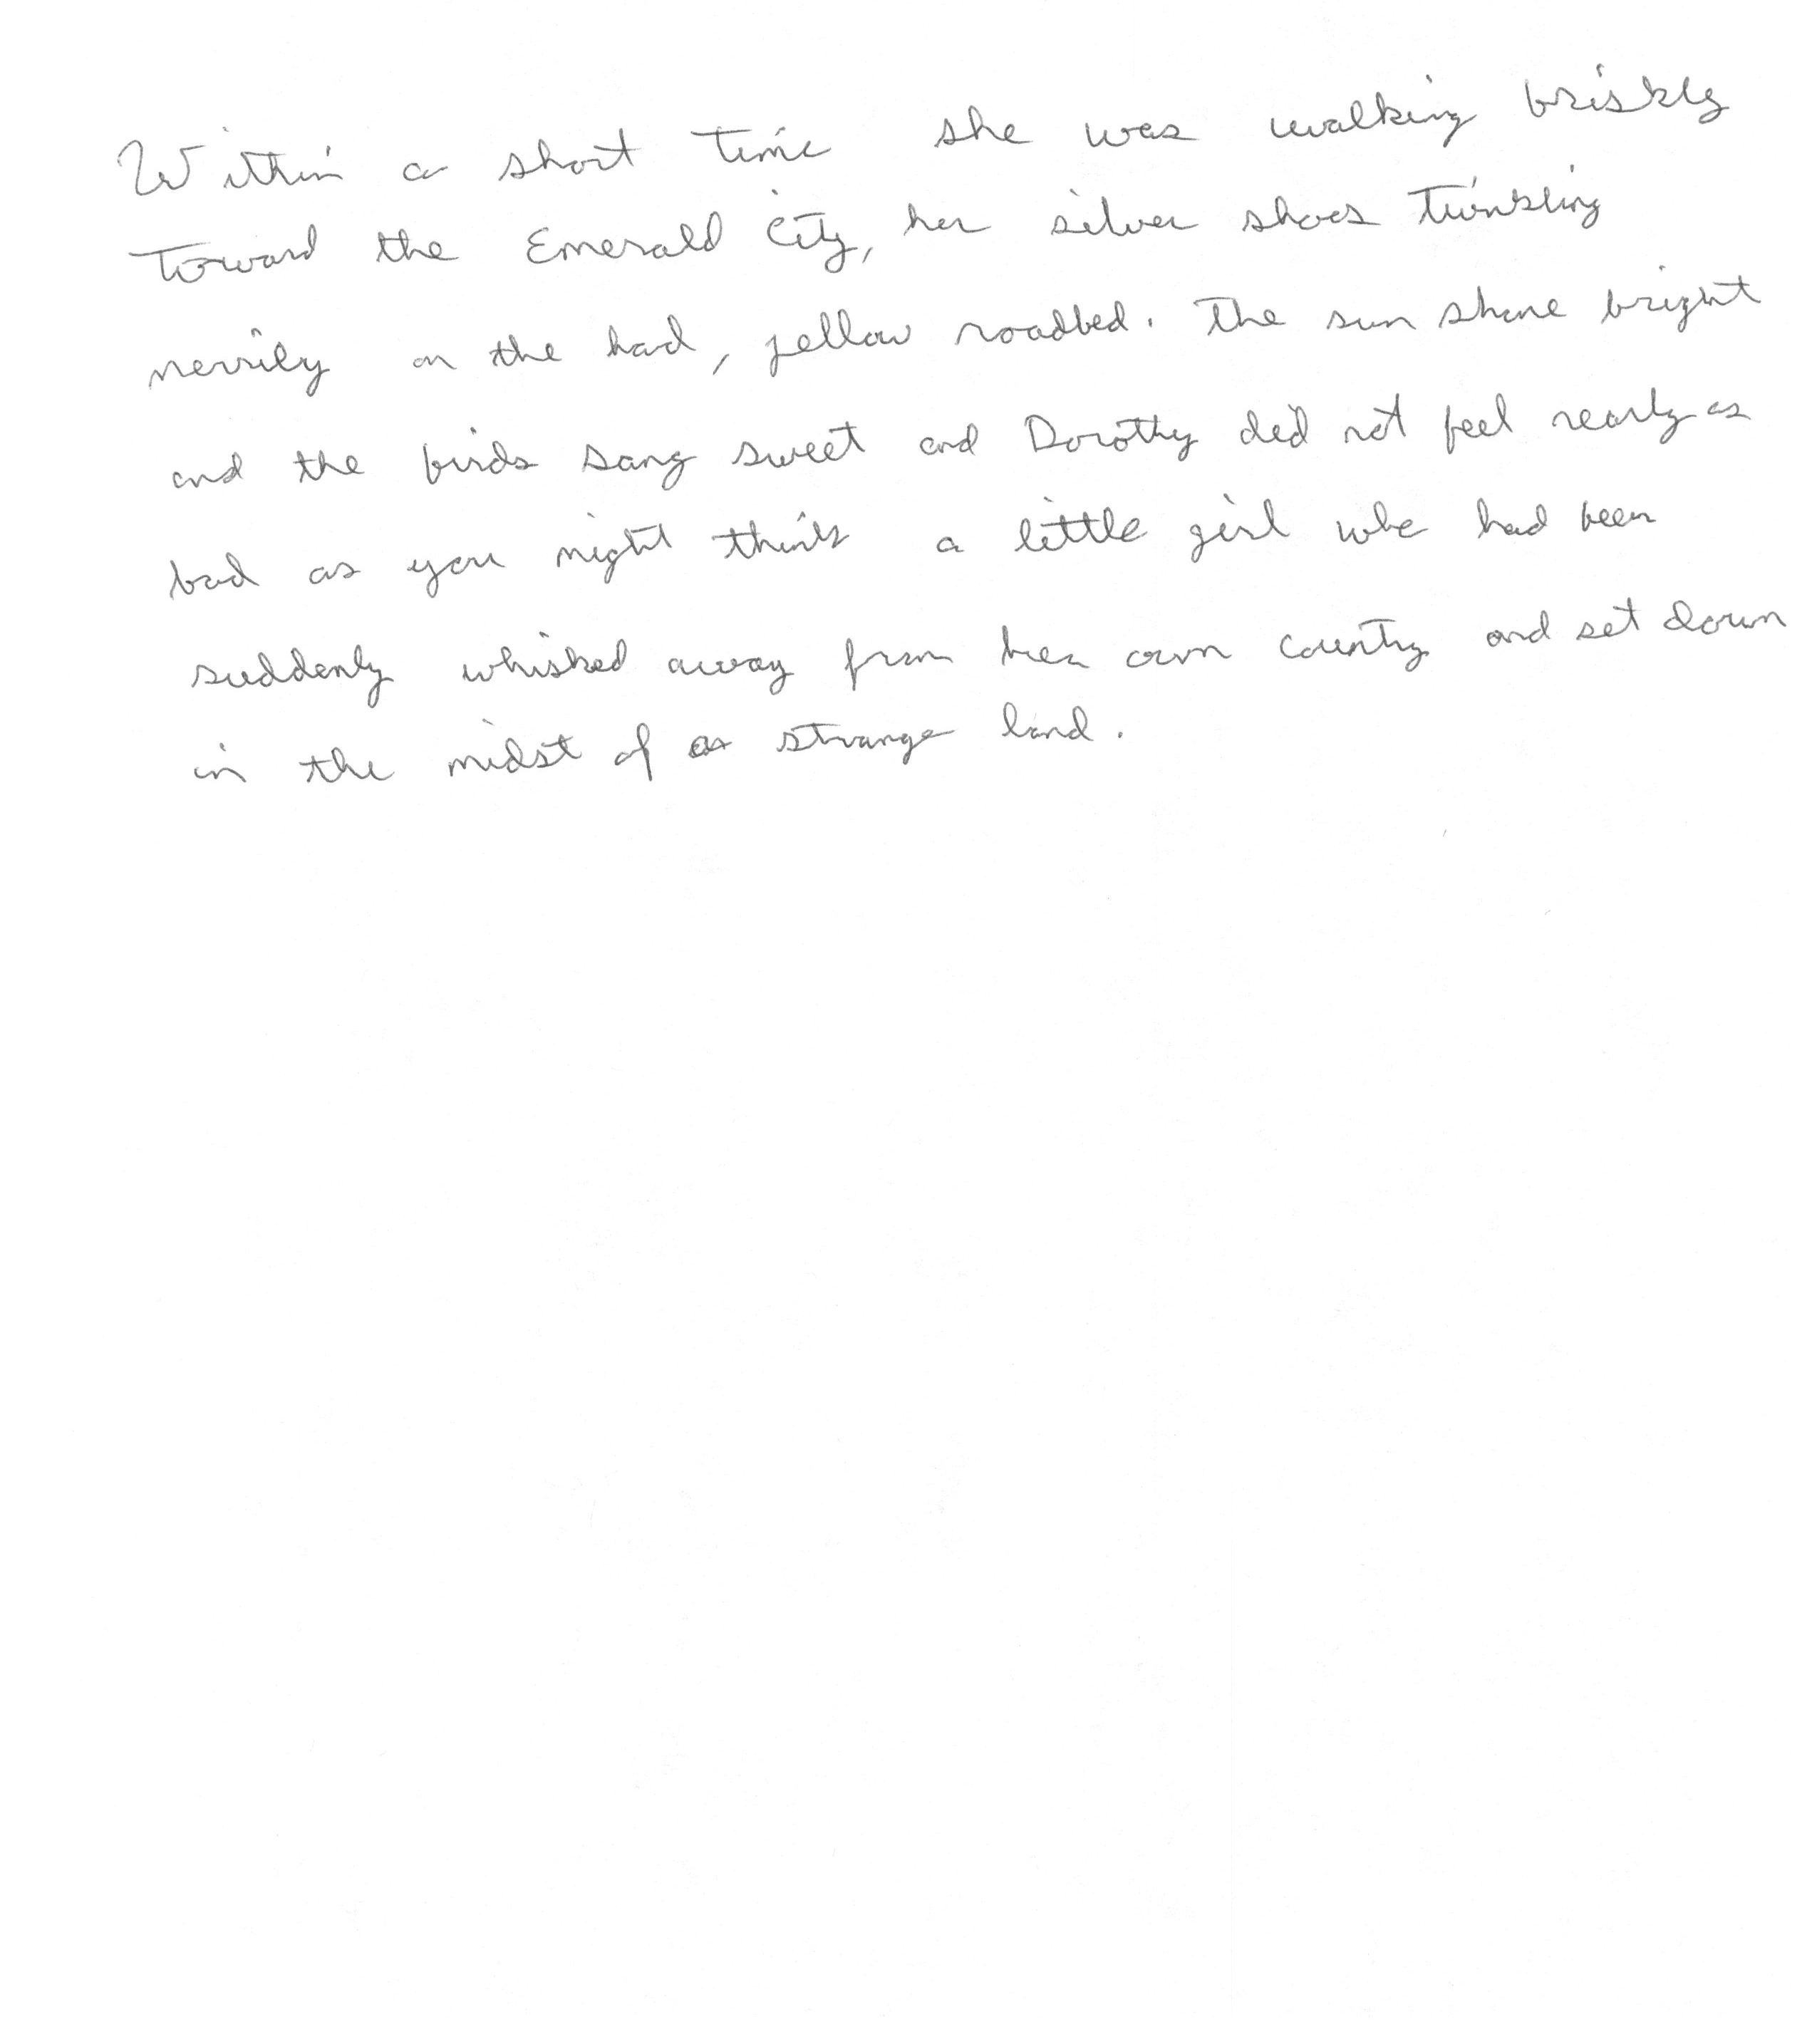 Within a short time she was walking briskly
toward the Emerald City, her silver shoes twinkling
merrily on the hard, yellow roadbed. The sun shone bright
and the birds sang sweet and Dorothy did not feel nearly as
bad as you might think a little girl who had been
suddenly whisked away from her own country and set down
in the midst of a strange land.